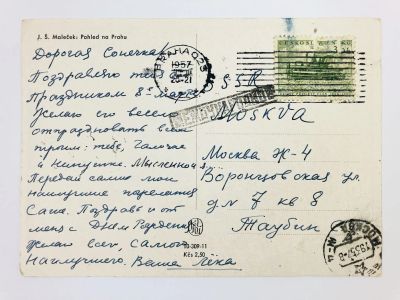 J. Š. Maleček: Pohled na Prahu
Дорогая Сонечка
Поздравляю тебя
Праздником 8ᵉ марта
Желаю его весело
отпраздновать всем
троим: тебе, Галочке
и Нинушке. Мысленно
Передай самые мои
наилучшие пожелания
Саше. Поздравь и от
меня с Днем Рождения
желаю всего, самого
Наилучшего. Ваша Лёка
PRAHA 025
1957
ČESKOSLOVENSKO
SSSR
MOSKVA
Москва Ж-4
Воронцовская ул.
д № 7 кв 8
Таубин
МОСКВА
10-309-11
Kčs 2,50